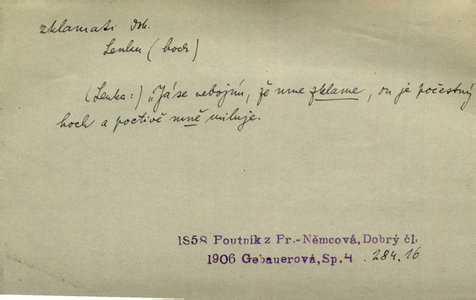 zklamati dok.
Lenku (hoch)
(Lenka:) „Já se nebojím, že mne zklame, on je počestný
hoch a poctivě mně miluje.
1858 Poutník z Pr.-Němcová, Dobrý čl.
1906 Gebauerová, Sp. 4 .284.16